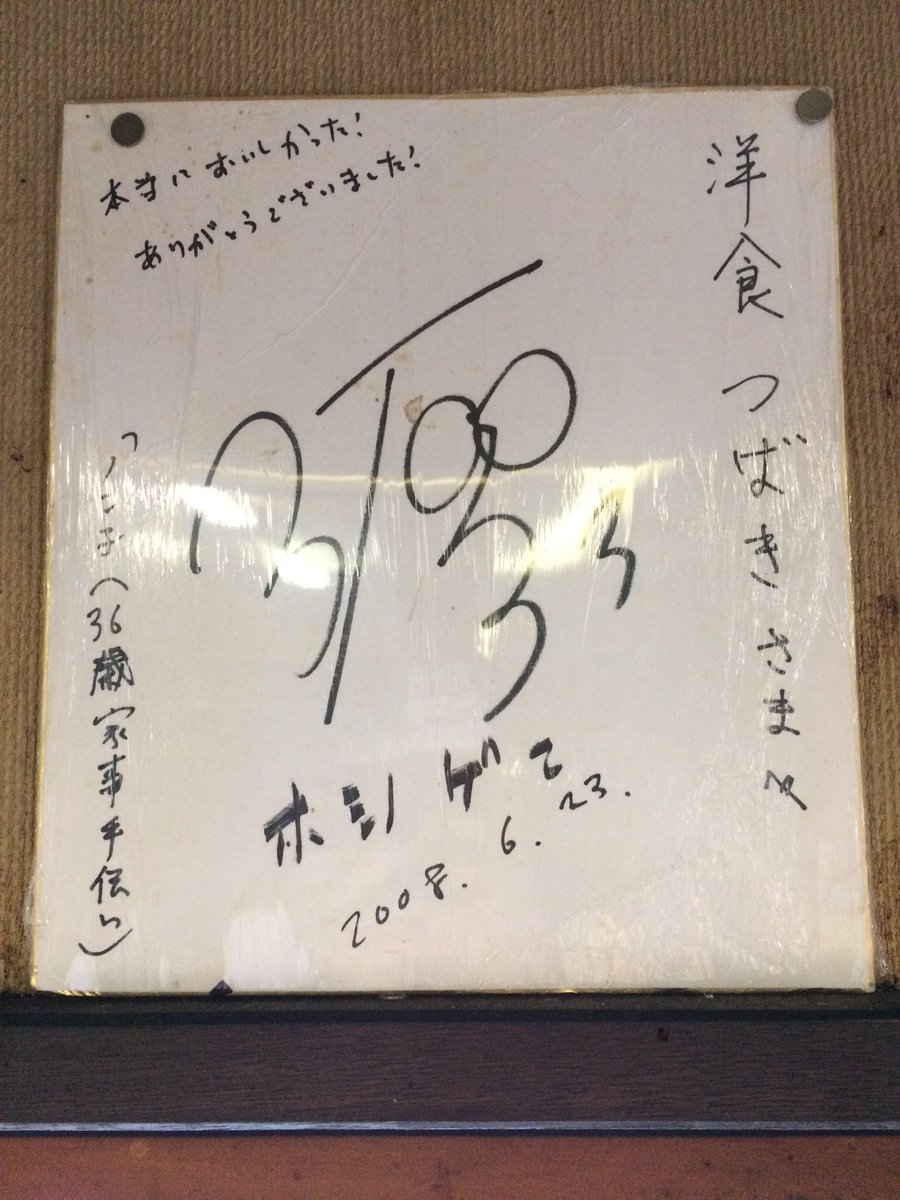 洋食 つばきさま
本当においしかった!
ありがとうございました!
ホシ ゲン
2008. 6. 23.
(36歳家事手伝い)